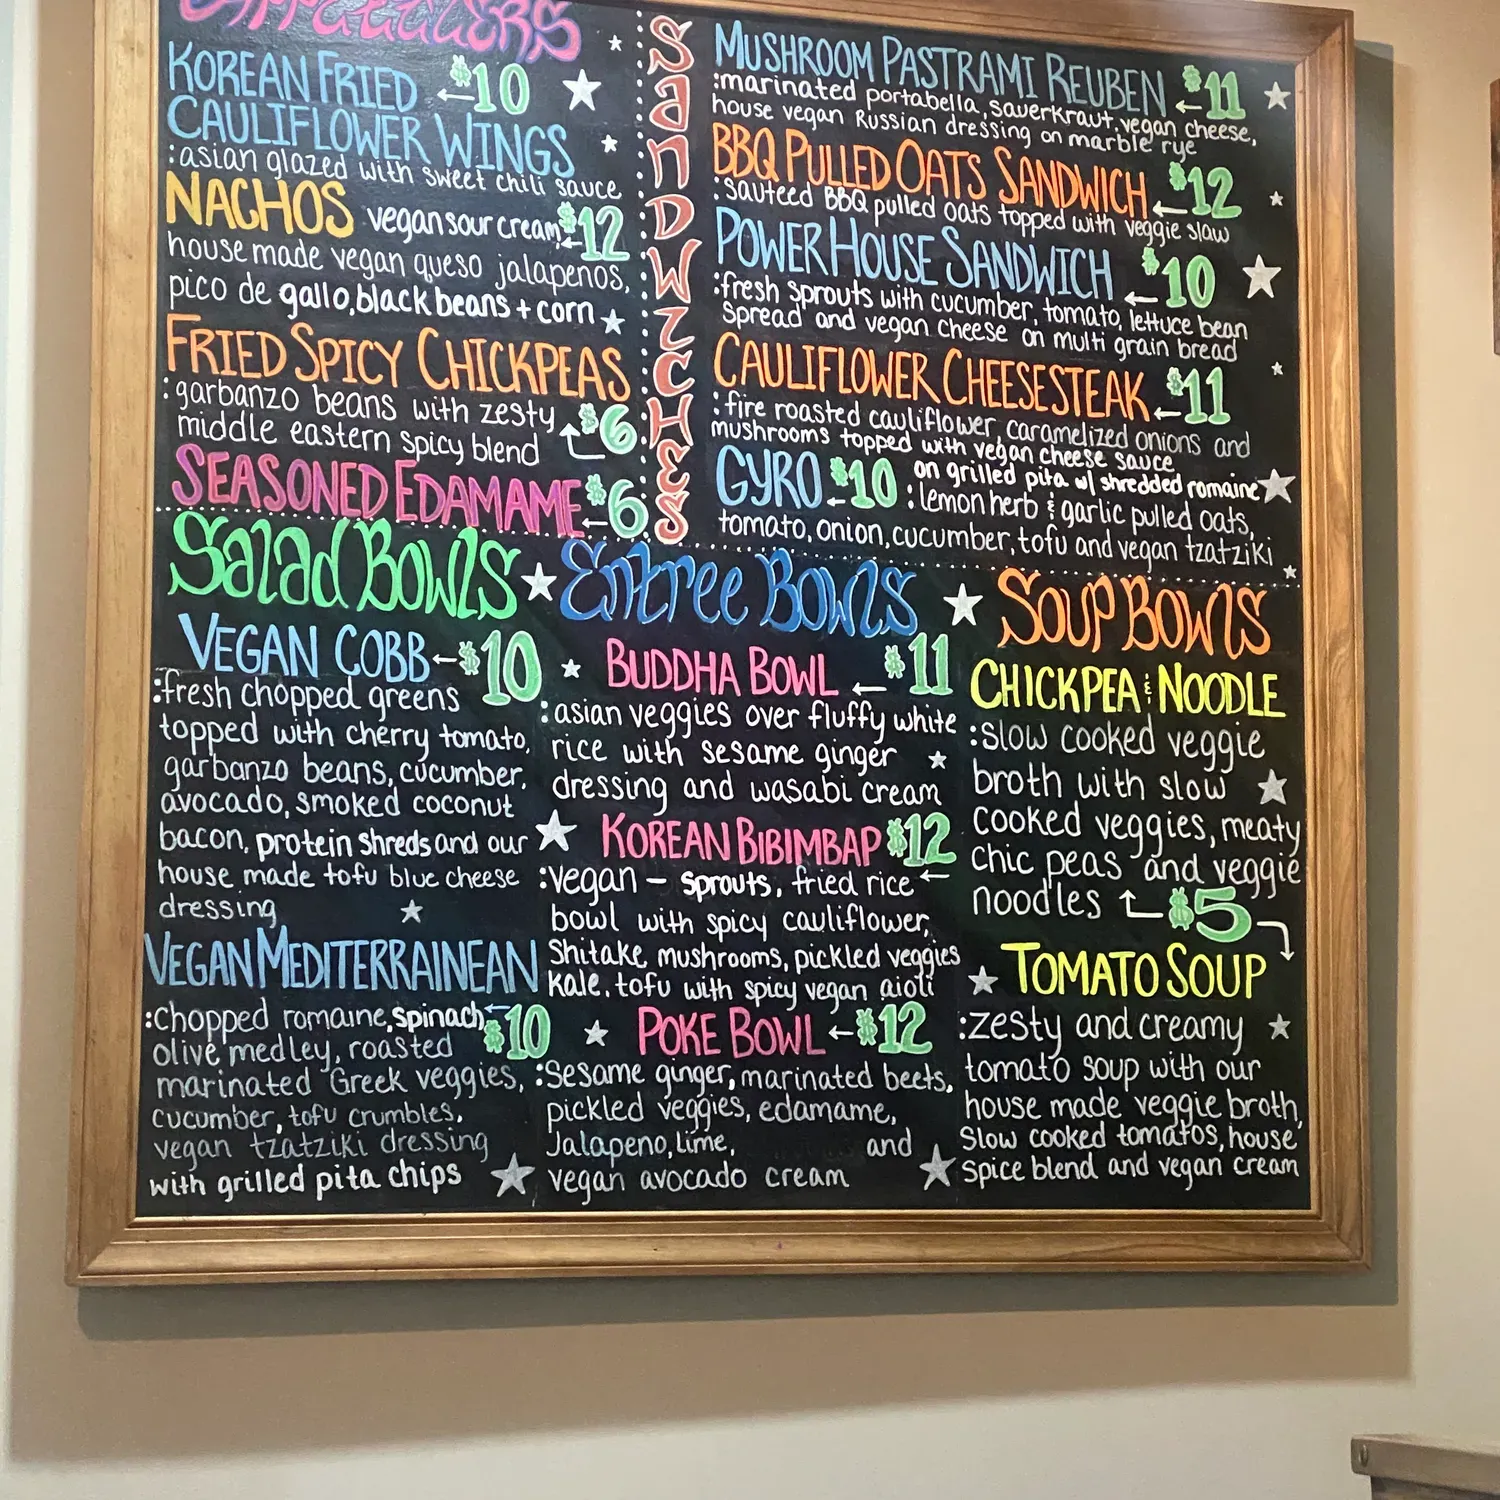 APPETIZERS
KOREAN FRIED $10
CAULIFLOWER WINGS
:asian glazed with sweet chili sauce
NACHOS :vegan sour cream, $12
house made vegan queso jalapenos,
pico de gallo, black beans + corn
FRIED SPICY CHICKPEAS
:garbanzo beans with zesty $6
middle eastern spicy blend
SEASONED EDAMAME $6
SANDWICHES
MUSHROOM PASTRAMI REUBEN $11
:marinated portabella, sauerkraut, vegan cheese,
house vegan Russian dressing on marble rye
BBQ PULLED OATS SANDWICH $12
:sauteed BBQ pulled oats topped with veggie slaw
POWER HOUSE SANDWICH $10
:fresh sprouts with cucumber, tomato, lettuce bean
spread and vegan cheese on multi grain bread
CAULIFLOWER CHEESESTEAK $11
:fire roasted cauliflower, caramelized onions and
mushrooms topped with vegan cheese sauce
on grilled pita w/ shredded romaine
GYRO $10 :lemon herb & garlic pulled oats,
tomato, onion, cucumber, tofu and vegan tzatziki
Salad Bowls
VEGAN COBB $10
:fresh chopped greens
topped with cherry tomato,
garbanzo beans, cucumber,
avocado, smoked coconut
bacon, protein shreds and our
house made tofu blue cheese
dressing
VEGAN MEDITERRAINEAN
:Chopped romaine, spinach $10
olive medley, roasted
marinated Greek veggies,
cucumber, tofu crumbles,
vegan tzatziki dressing
with grilled pita chips
Entree Bowls
BUDDHA BOWL $11
:asian veggies over fluffy white
rice with sesame ginger
dressing and wasabi cream
KOREAN BIBIMBAP $12
:vegan - sprouts, fried rice
bowl with spicy cauliflower,
Shitake mushrooms, pickled veggies
kale, tofu with spicy vegan aioli
POKE BOWL $12
:Sesame ginger, marinated beets,
pickled veggies, edamame,
Jalapeno, lime, and
vegan avocado cream
SOUP BOWLS
CHICKPEA & NOODLE
:slow cooked veggie
broth with slow
cooked veggies, meaty
chic peas and veggie
noodles $5
TOMATO SOUP
:zesty and creamy
tomato soup with our
house made veggie broth,
Slow cooked tomatos, house
spice blend and vegan cream